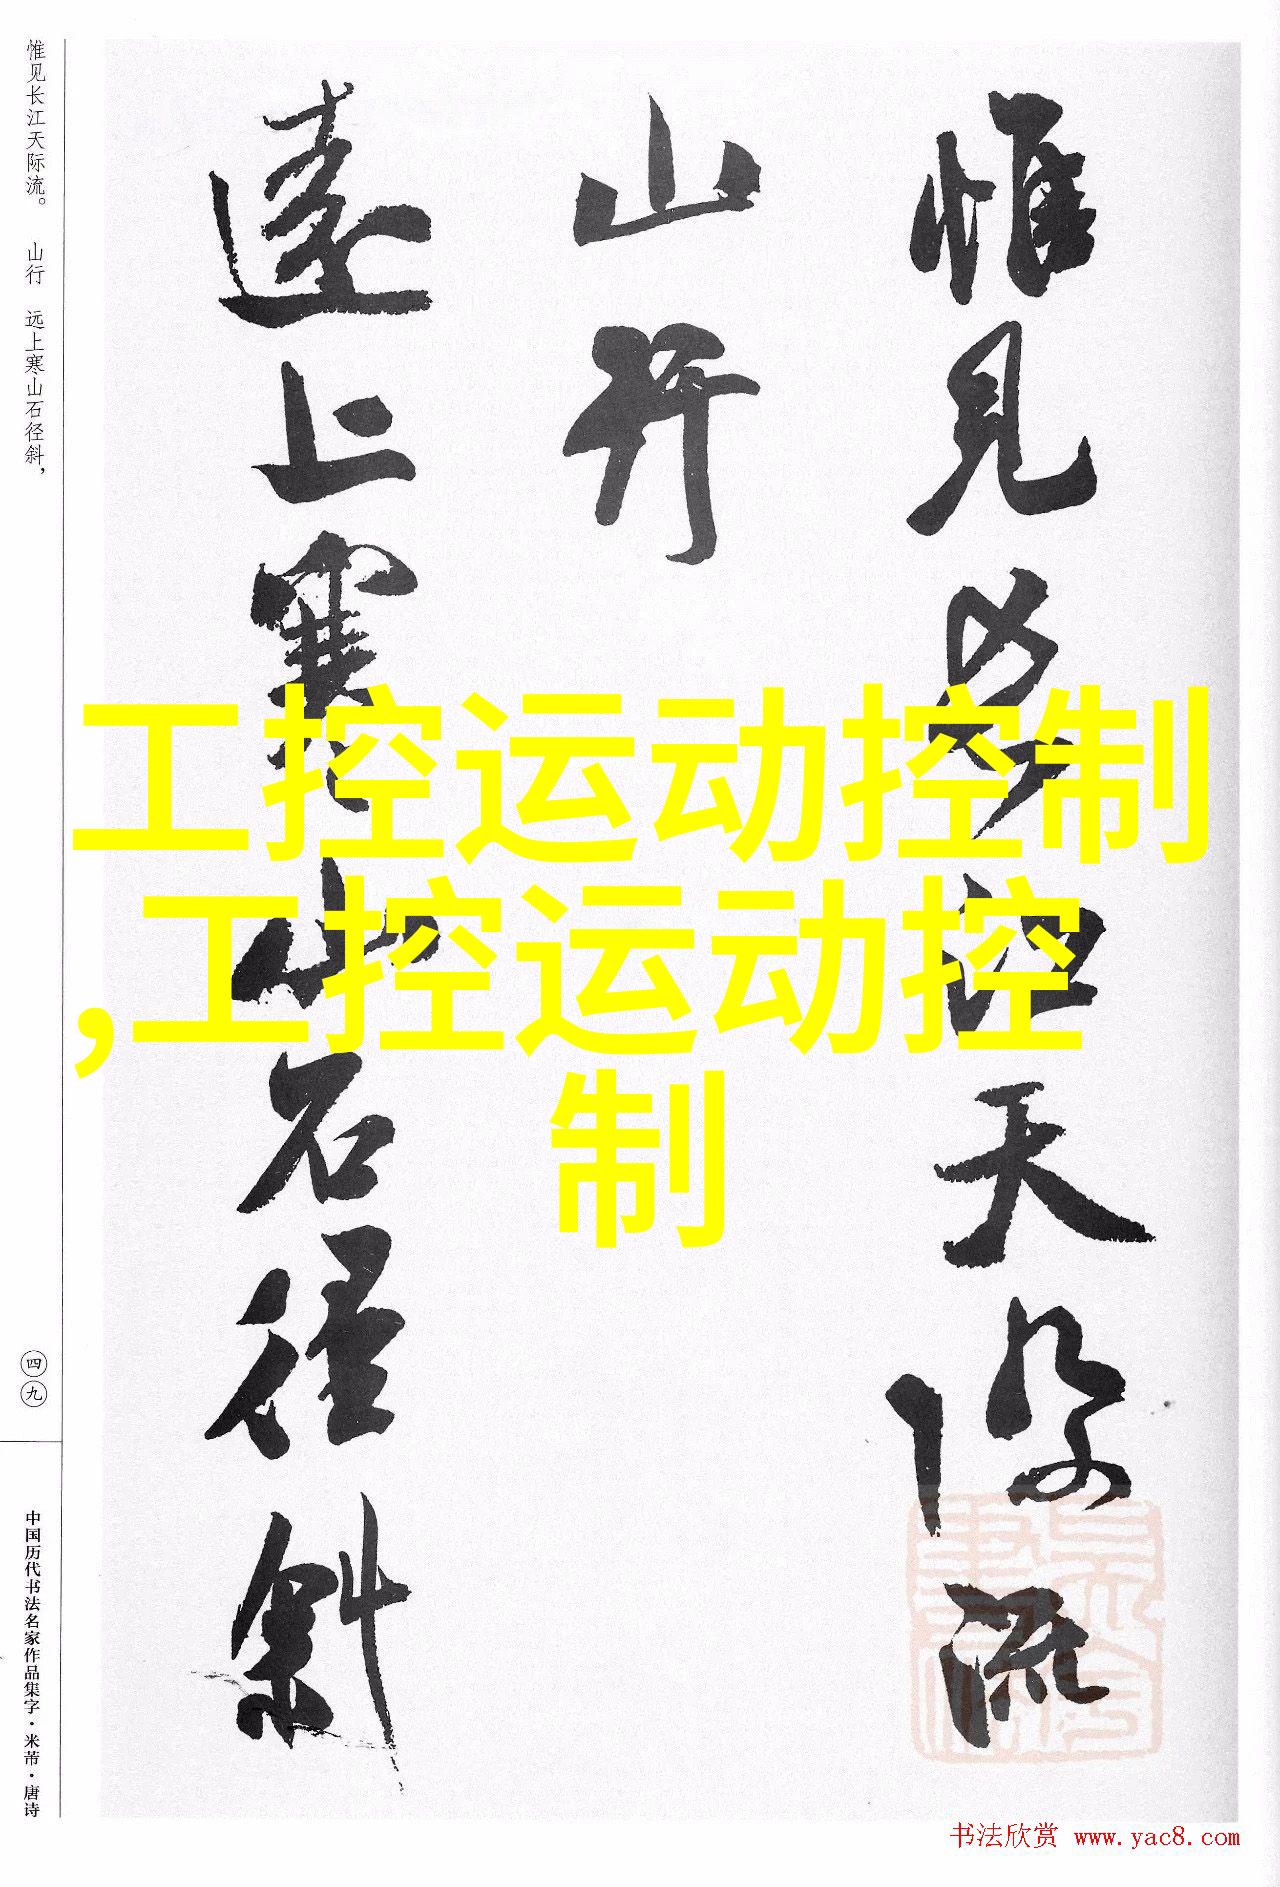 惟见长江天际流。 山行 远上寒山石径斜，
惟見長江天際流
山行
遠上寒山石徑斜
工控运动控制
,工控运动控
制
四九
中国历代书法名家作品集字·米芾·唐诗
书法欣赏 www.yac8.com